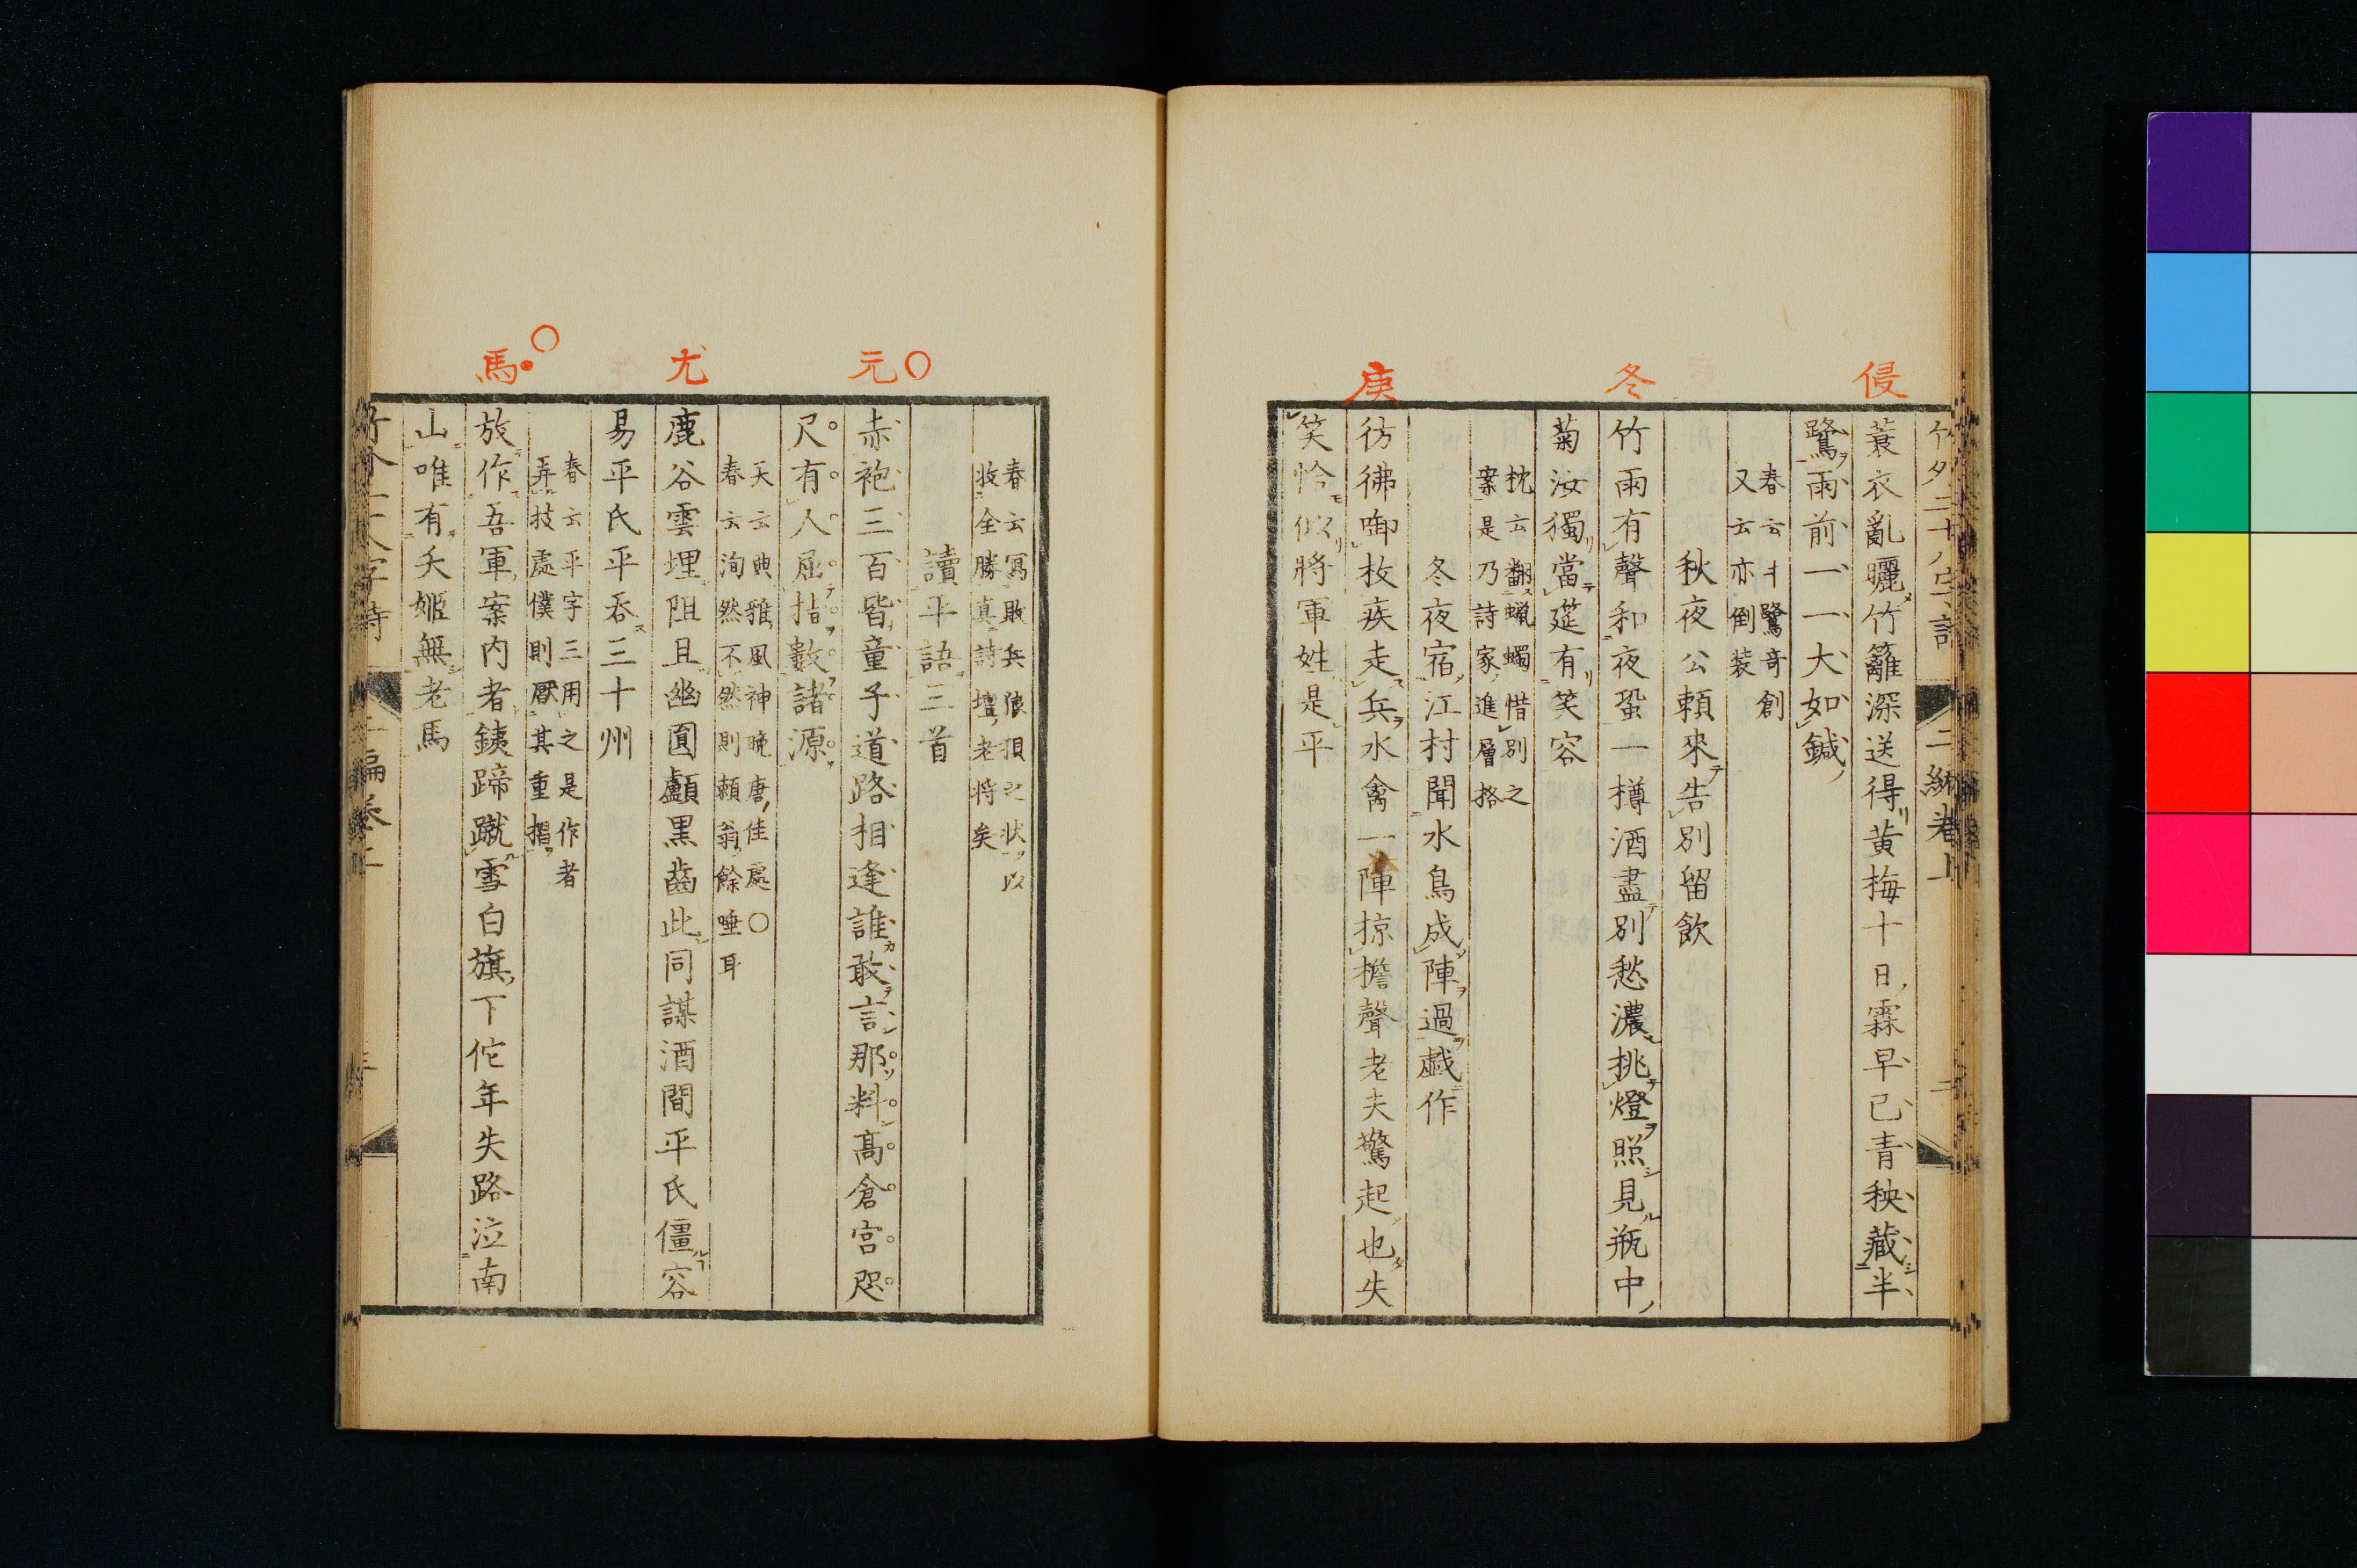 侵
冬
庚
竹外二十八字詩 二編卷上
蓑衣亂曬竹籬深送得黃梅十日霖早已青秧藏半
鷺雨前一一大如鍼
春云斗驚奇創
又云亦倒装
秋夜公頼來告別留飲
竹雨有聲和夜蛩一樽酒盡別愁濃挑燈照見瓶中
菊汝獨當筵有笑容
枕云翻蠟蠋惜別之
案是乃詩家進層格
冬夜宿江村聞水鳥成陣過戯作
彷彿啣枚疾走兵水禽一陣掠檐聲老夫驚起也失
笑怜似將軍姓是平
元
尤
馬
春云寫敗兵狼狽之状以
收全勝真詩壇老将矣
讀平語三首
赤袍三百皆童子道路相逢誰敢言那料高倉宮咫
尺有人屈指數諸源
天云典雅風神晩唐佳處
春云洵然不然則頼翁餘唾耳
鹿谷雲埋阻且幽圓顱黒齒此同謀酒間平氏僵容
易平氏平呑三十州
春云平字三用之是作者
弄技處僕則厭其重摺
放作吾軍案内者銕蹄蹴雪白旗下佗年失路泣南
山唯有夭姬無老馬